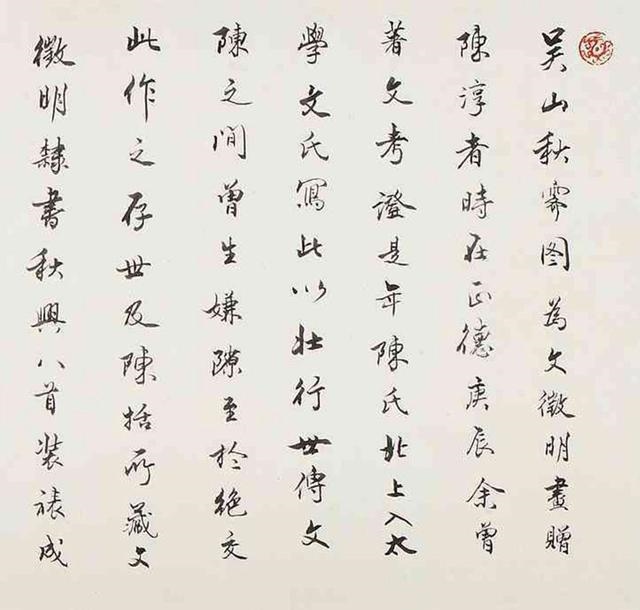 吴山秋霽图為文徵明畫贈
陳淳者時在正德庚辰余曾
著文考證是年陳氏北上入太
學文氏寫此以壯行世傳文
陳之間曾生嫌隙至於絕交
此作之存世及陳括所藏文
徵明隸書秋興八首裝裱成